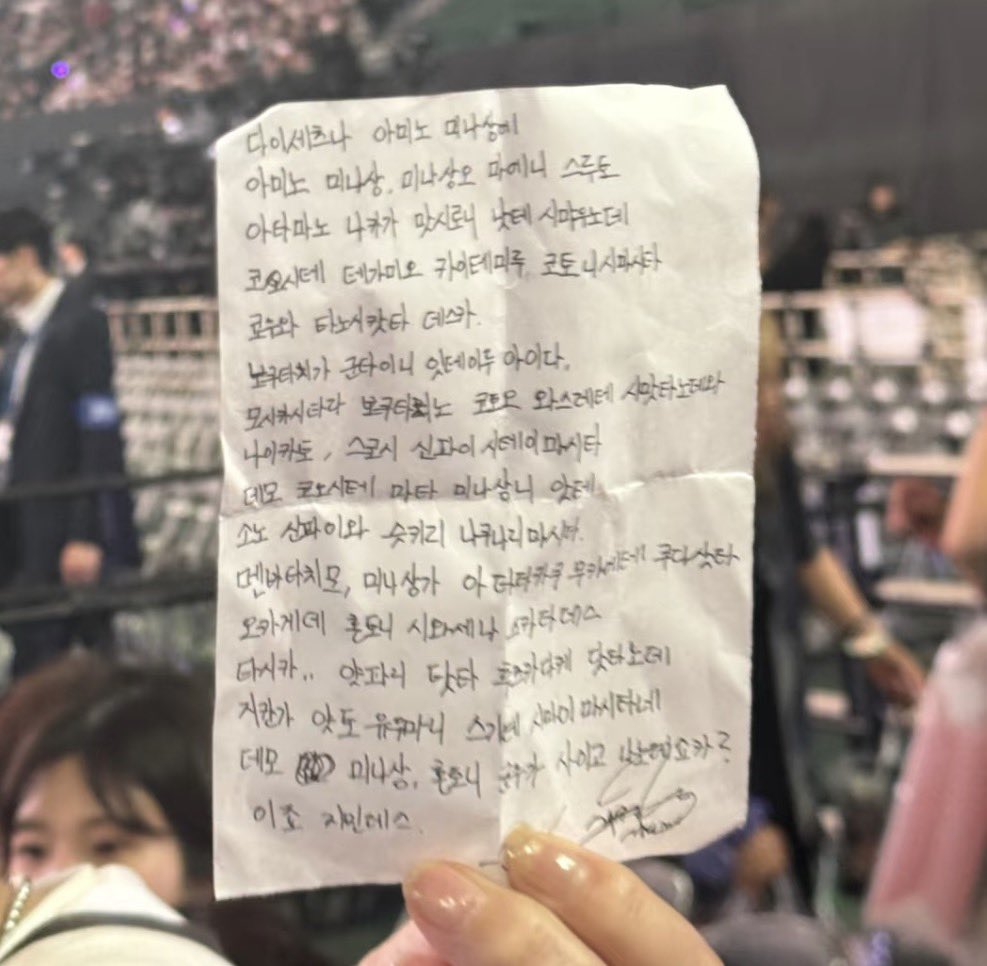 다이세츠나 아미노 미나상에
아미노 미나상, 미나상오 마에니 스루토
아타마노 나카가 맛시로니 낫테 시마우노데
코오시테 테가미오 카이테미루 코토니시마시타
쿄우와 타노시캇타 데스카.
보쿠타치가 군타이니 잇테이루 아이다,
모시카시타라 보쿠타치노 코토모 와스레테 시맛타노데와
나이카토, 스코시 신파이시테이마시타
데모 코오시테 마타 미나상니 앗테
소노 신파이와 슷키리 나쿠나리마시타.
멘바타치모, 미나상가 아타타카쿠 무카에테 쿠다삿타
오카게데 혼토니 시와세나 데스
타시카.. 얏파리 닷타 닷타노데
지칸가 앗토유우마니 스기테 시마이마시타네
데모 미나상, 혼토니 사이고 나노데쇼카?
이죠 지민데스.